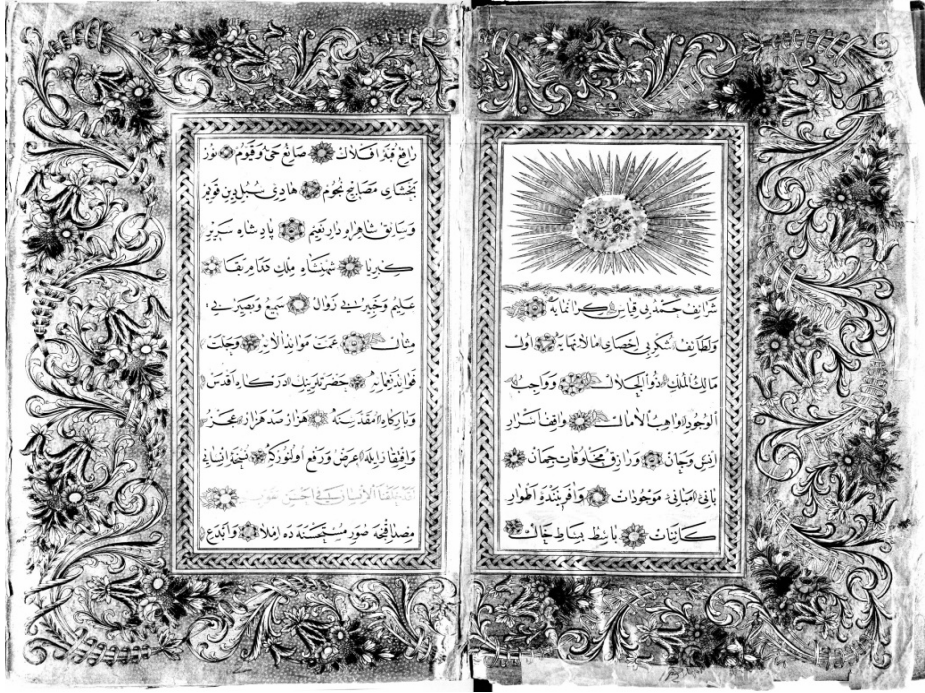 شرایف حمد بی قیاس کرانمایه
ولطائف شکر بی احصای مالانهایه اول
مالك الملك ذو الجلال و واجب
الوجود واهب الآمال واقف اسرار
انس وجان و رازق مخلوقات جهان
بانی مبانی موجودات و آفریننده اطوار
کائنات باسط بساط
رافع قبه افلاك صانع حی وقیوم نور
بخشای مصابیح نجوم هادی سبل دین قویم
وسائق شاهراه دار نعیم پادشاه سریر
کبریا شهنشاه ملك قدام بقا
علیم وخبیر بی زوال سمیع وبصیر بی
مثال عمت موائد آلائه وجلت
فوائد نعمائه حضرتلرینك درکاه اقدس
وبارکاه مقدسنه هزار صد هزار عجز
وافتقار ایله عرض ورفع اولنورکه
الانسان فی احسن
صور مستحسنه ده املا وابدع